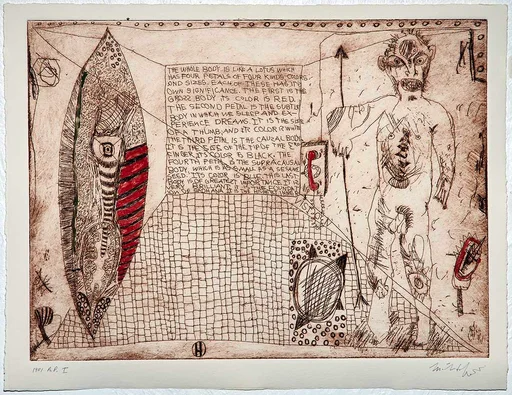 THE WHOLE BODY IS LIKE A LOTUS WHICH
HAS FOUR PETALS OF FOUR KINDS, COLORS
AND SIZES. EACH OF THESE HAS ITS
OWN SIGNIFICANCE. THE FIRST IS THE
GROSS BODY. ITS COLOR IS RED.
THE SECOND PETAL IS THE SUBTLE
BODY IN WHICH WE SLEEP AND EX-
PERIENCE DREAMS. IT IS THE SIZE
OF A THUMB, AND ITS COLOR IS WHITE
THE THIRD PETAL IS THE CAUSAL BODY.
IT IS THE SIZE OF THE TIP OF THE
FINGER. ITS COLOR IS BLACK. THE
FOURTH PETAL IS THE SUPRACAUSAL
BODY WHICH IS AS SMALL AS A SESAME
SEED. ITS COLOR IS BLUE. THIS LAST
BODY IS OF GREATEST IMPORTANCE. IT IS
H
1991 A.P. I